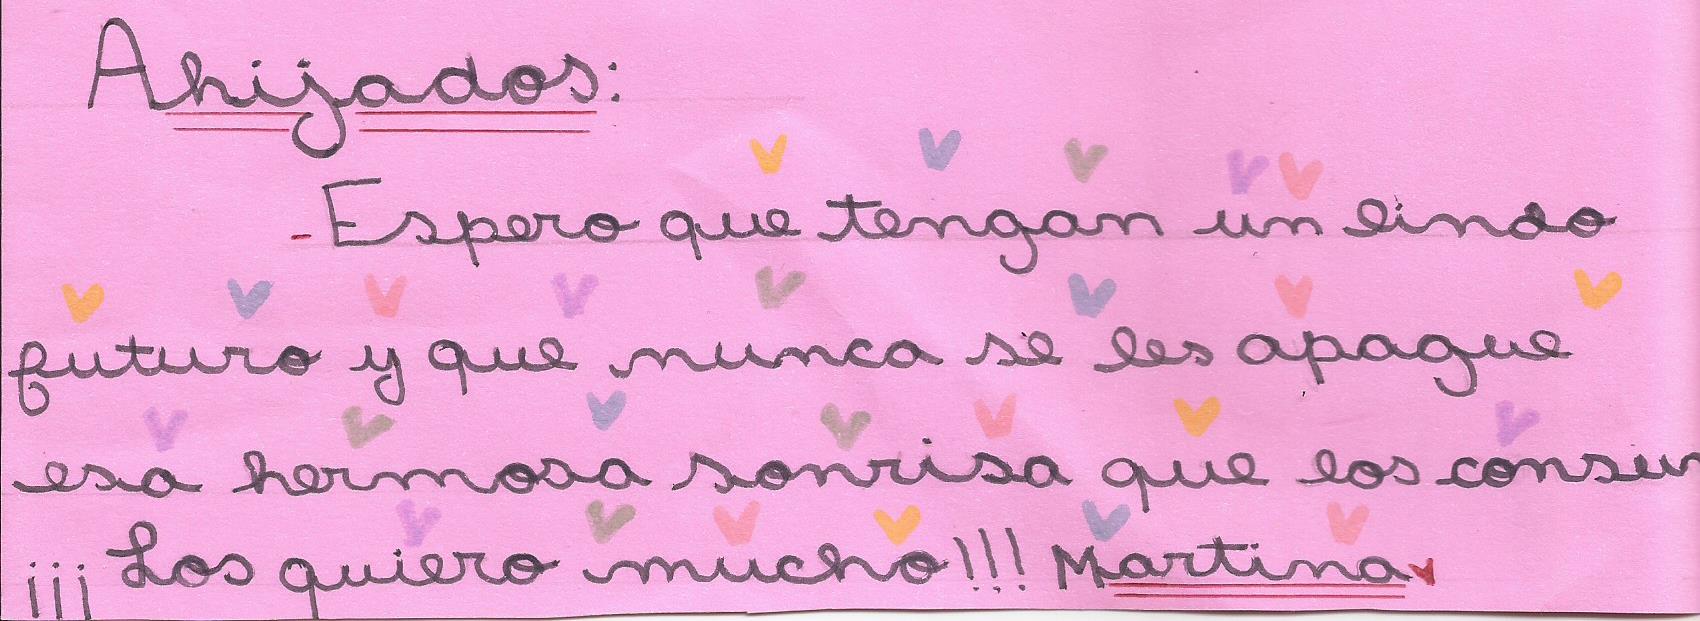 Ahijados:
- Espero que tengan un lindo
futuro y que nunca se les apague
esa hermosa sonrisa que los
¡¡¡Los quiero mucho!!! Martina